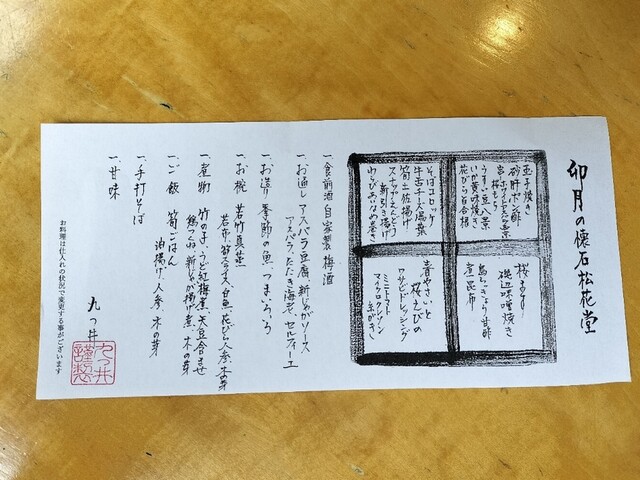 卯月の懐石松花堂
玉子焼き
砂肝ポン酢
うすい豆八景
いか黄味焼き
花びら百合根
そばコロッケ
牛舌チーズ湯葉
筍土佐揚げ
スナップえんどう
新引き揚げ
わらびあいなめ巻き
桜ます
磯辺味噌焼き
島らっきょう甘酢
煮昆布
春やさいと
桜えびの
ワサビドレッシング
ミニトマト
マイクログリーン
糸がき
一、食前酒 自家製 梅酒
一、お通し アスパラ豆腐 新じゃがソース
アスパラ、たたき海老、セルフィーユ
一、お造り 季節の魚 つまいろいろ
一、お椀 若竹真薯
若布、筍スライス、木の芽
一、煮物 竹の子、うど、紅梅煮、大豆合ませ
鶏つくね、新じゃが揚げ煮、木の芽
一、ご飯 筍ごはん
油揚げ、人参、木の芽
一、手打そば
一、甘味
九つ井
お料理は仕入れの状況で変更する事がございます
九つ井
謹製